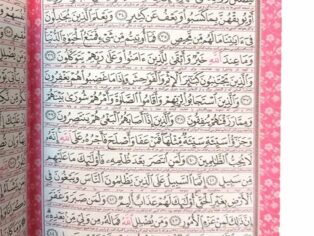 أَوْ يُوبِقْهُنَّ بِمَا كَسَبُوا۟ وَيَعْفُ عَن كَثِيرٍ ٣٤ وَيَعْلَمَ ٱلَّذِينَ يُجَٰدِلُونَ
فِىٓ ءَايَٰتِنَا مَا لَهُم مِّن مَّحِيصٍ ٣٥ فَمَآ أُوتِيتُم مِّن شَىْءٍ فَمَتَٰعُ ٱلْحَيَوٰةِ ٱلدُّنْيَا
وَمَا عِندَ ٱللَّهِ خَيْرٌ وَأَبْقَىٰ لِلَّذِينَ ءَامَنُوا۟ وَعَلَىٰ رَبِّهِمْ يَتَوَكَّلُونَ ٣٦
وَٱلَّذِينَ يَجْتَنِبُونَ كَبَٰٓئِرَ ٱلْإِثْمِ وَٱلْفَوَٰحِشَ وَإِذَا مَا غَضِبُوا۟ هُمْ يَغْفِرُونَ ٣٧
وَٱلَّذِينَ ٱسْتَجَابُوا۟ لِرَبِّهِمْ وَأَقَامُوا۟ ٱلصَّلَوٰةَ وَأَمْرُهُمْ شُورَىٰ بَيْنَهُمْ
وَمِمَّا رَزَقْنَٰهُمْ يُنفِقُونَ ٣٨ وَٱلَّذِينَ إِذَآ أَصَابَهُمُ ٱلْبَغْىُ هُمْ يَنتَصِرُونَ ٣٩
وَجَزَٰٓؤُا۟ سَيِّئَةٍ سَيِّئَةٌ مِّثْلُهَا فَمَنْ عَفَا وَأَصْلَحَ فَأَجْرُهُۥ عَلَى ٱللَّهِ إِنَّهُۥ
لَا يُحِبُّ ٱلظَّٰلِمِينَ ٤٠ وَلَمَنِ ٱنتَصَرَ بَعْدَ ظُلْمِهِۦ فَأُو۟لَٰٓئِكَ مَا عَلَيْهِم
مِّن سَبِيلٍ ٤١ إِنَّمَا ٱلسَّبِيلُ عَلَى ٱلَّذِينَ يَظْلِمُونَ ٱلنَّاسَ وَيَبْغُونَ فِى
ٱلْأَرْضِ بِغَيْرِ ٱلْحَقِّ أُو۟لَٰٓئِكَ لَهُمْ عَذَابٌ أَلِيمٌ ٤٢ وَلَمَن صَبَرَ وَغَفَرَ
إِنَّ ذَٰلِكَ لَمِنْ عَزْمِ ٱلْأُمُورِ ٤٣ وَمَن يُضْلِلِ ٱللَّهُ فَمَا لَهُۥ مِن وَلِىٍّ مِّنۢ بَعْدِهِۦ